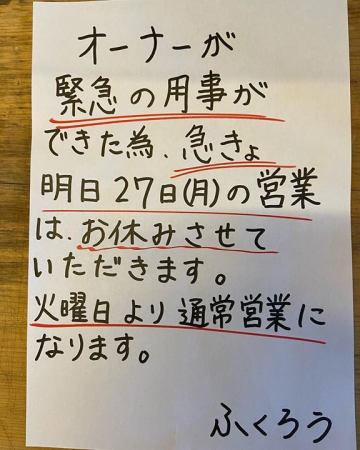 オーナーが
緊急の用事が
できた為、急きょ
明日27日(月)の営業
は、お休みさせて
いただきます。
火曜日より通常営業に
なります。
ふくろう